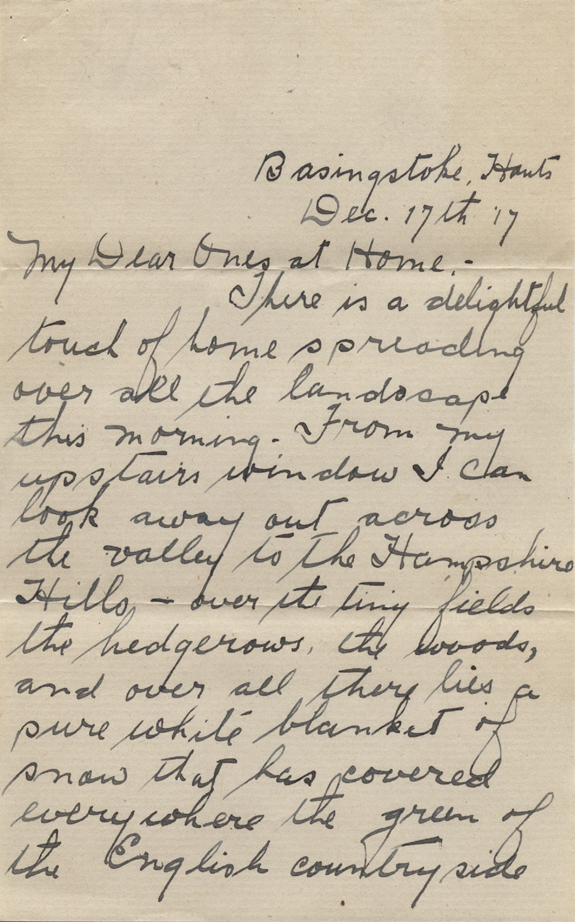 Basingstoke, Hants
Dec. 17th '17
My Dear Ones at Home.-
There is a delightful
touch of home spreading
over all the landscape
this morning. From my
upstairs window I can
look away out across
the valley to the Hampshire
Hills, - over its tiny fields
the hedgerows, the woods,
and over all there lies a
pure white blanket of
snow that has covered
everywhere the green of
the English countryside